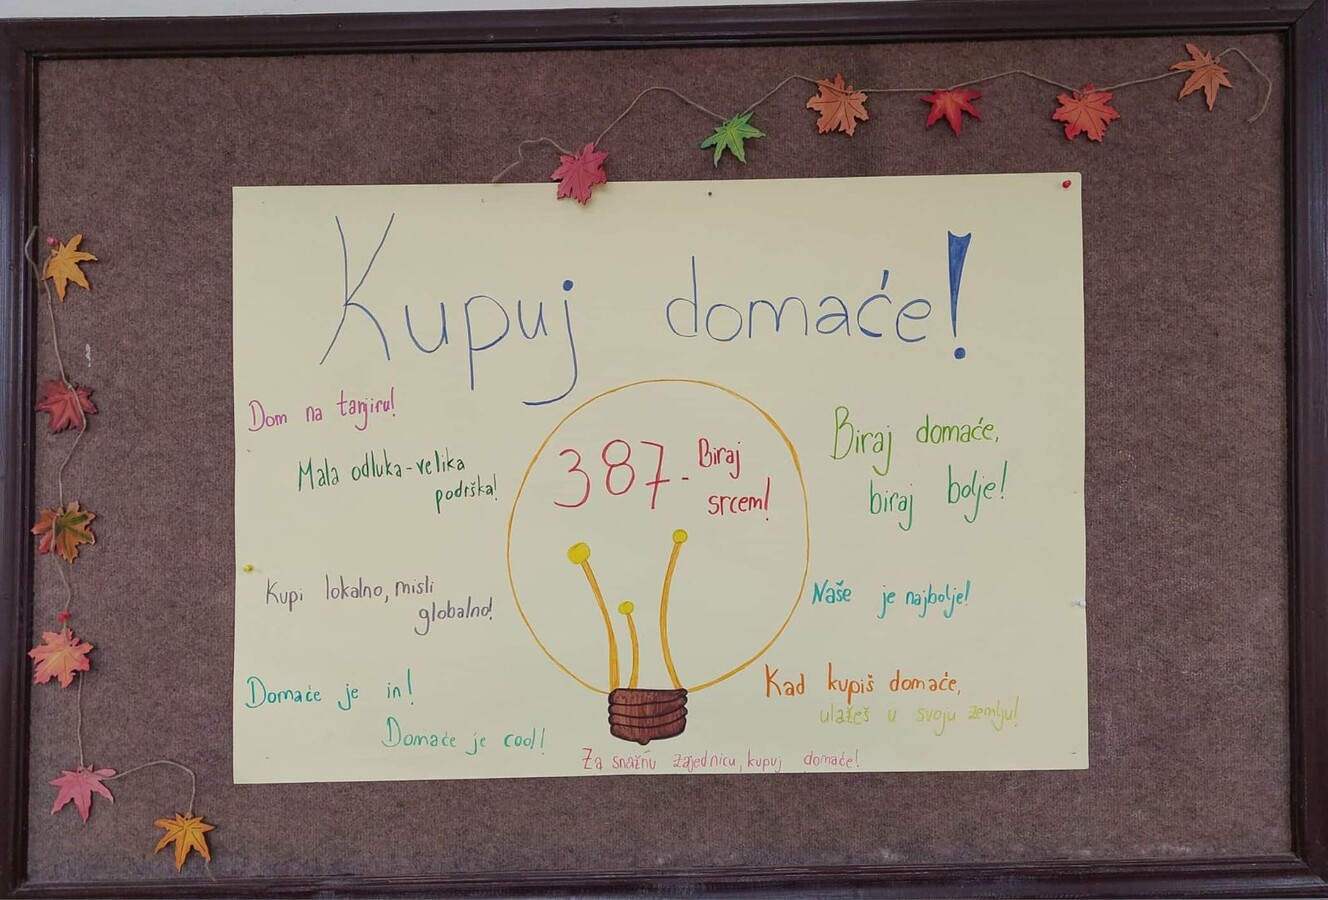 Kupuj domaće!
Dom na tanjiru!
Mala odluka-velika
podrška!
Kupi lokalno, misli
globalno!
Domaće je in!
Domaće je cool!
387-Biraj
srcem!
Biraj domaće,
biraj bolje!
Naše je najbolje!
Kad kupiš domaće,
ulažeš u svoju zemlju!
Za snažnu zajednicu, kupuj domaće!